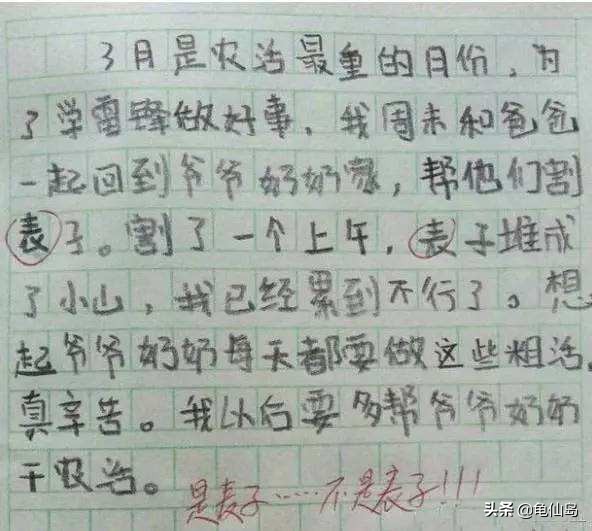 3月是农活最重的月份，为
了学雷锋做好事，我周末和爸爸
一起回到爷爷奶奶家，帮他们割
表子。割了一个上午，表子堆成
了小山，我已经累到不行了。想
起爷爷奶奶每天都要做这些粗活，
真辛苦。我以后要多帮爷爷奶奶
干农活。
是麦子……不是表子!!!
头条 @龟仙岛